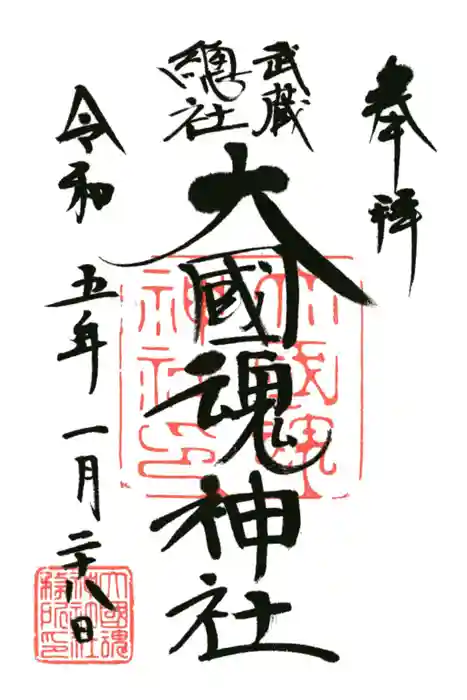 奉拝
武蔵
總社
大國魂神社
令和五年一月二十八日
大國魂
神社印
大國魂
神社社
務所印